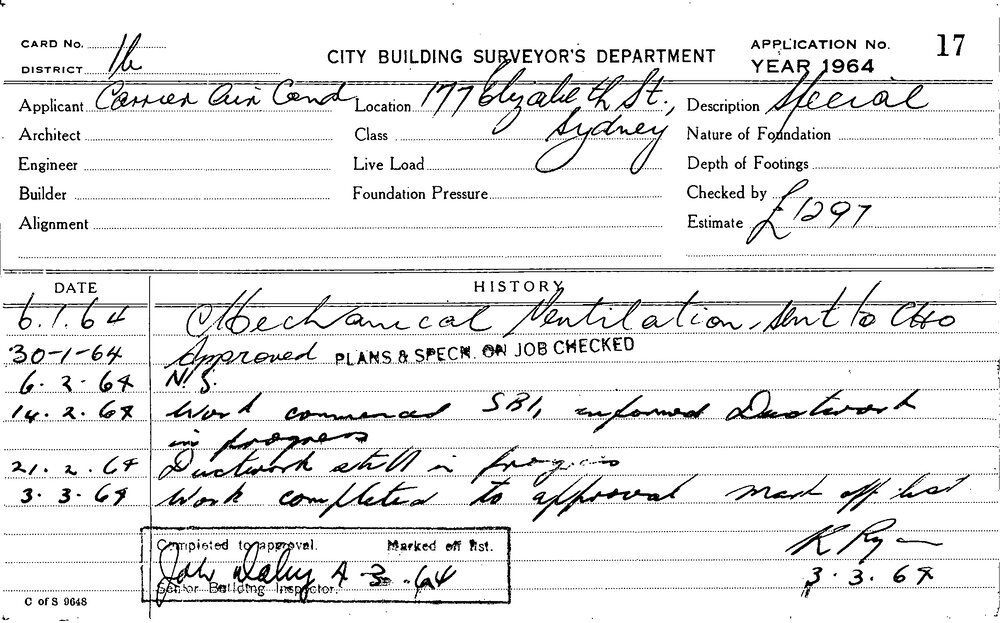 CARD No.
DISTRICT 1b
CITY BUILDING SURVEYOR'S DEPARTMENT
APPLICATION No. 17
YEAR 1964
Applicant Carrier Air Cond Location 177 Elizabeth St., Description Special
Architect Class Sydney Nature of Foundation
Engineer Live Load Depth of Footings
Builder Foundation Pressure Checked by
Alignment Estimate £1297
DATE HISTORY
6.1.64 Mechanical Ventilation, sent to CHO
30-1-64 Approved PLANS & SPECN. ON JOB CHECKED
6.2.64 N.S.
14.2.64 Work commenced SBI, informed Ductwork
in progress
21.2.64 Ductwork still in progress
3.3.64 Work completed to approval mark off list
K Ryan
3.3.64
Completed to approval. Marked off list.
John Daley 4 3 .64
Senior Building Inspector.
C of S 9648